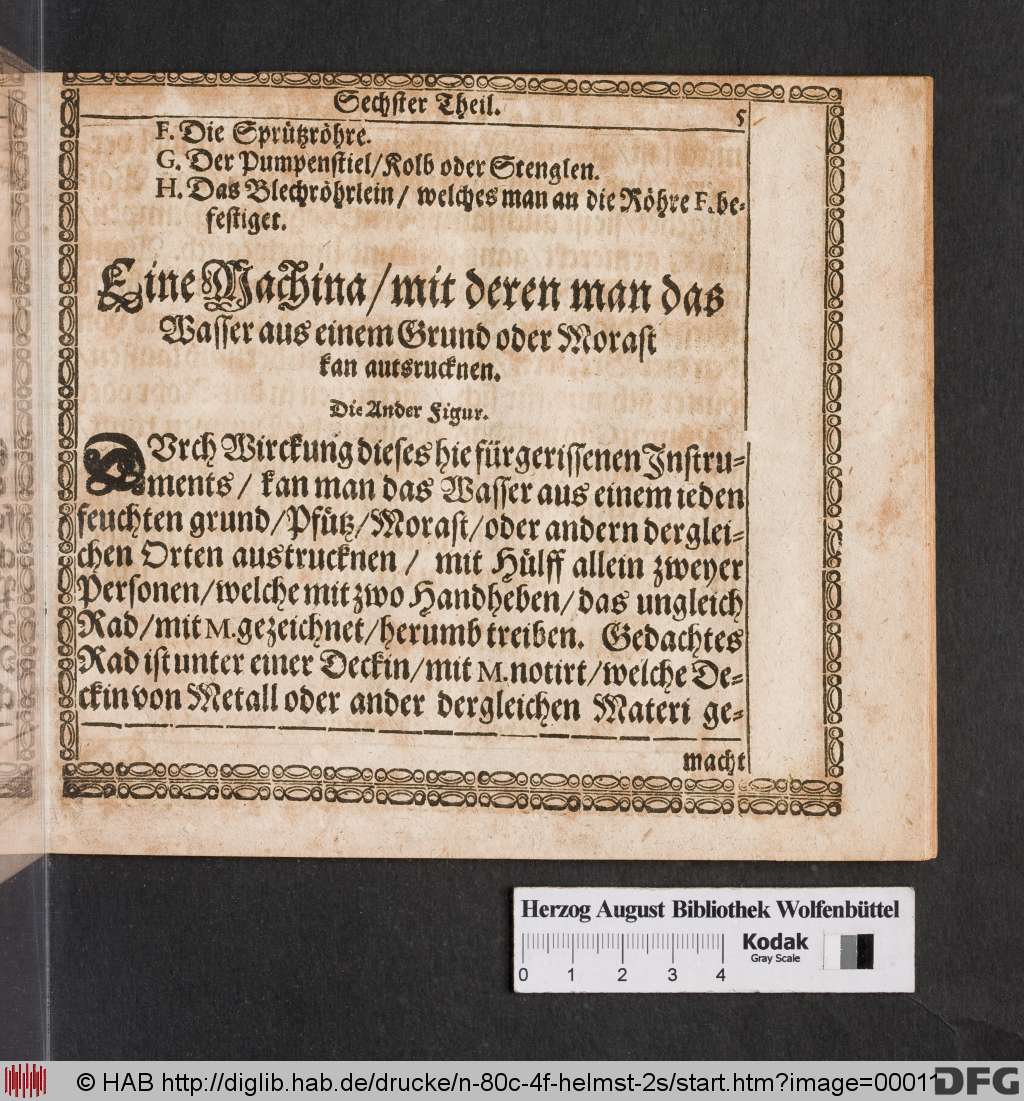 Sechster Theil.
5
F. Die Sprützröhre.
G. Der Pumpenstiel/Kolb oder Stenglen.
H. Das Blechröhrlein/ welches man an die Röhre F. be-
festiget.
Eine Machina/mit deren man das
Wasser aus einem Grund oder Morast
kan autsrucknen.
Die Ander Figur.
DUrch Wirckung dieses hie fürgerissenen Instru-
ments/ kan man das Wasser aus einem ieden
feuchten grund/Pfütz/Morast/oder andern derglei-
chen Orten austrucknen/ mit Hülff allein zweyer
Personen/welche mit zwo Handheben/das ungleich
Rad/mit M. gezeichnet/herumb treiben. Gedachtes
Rad ist unter einer Deckin/mit M. notirt/welche De-
ckin von Metall oder ander dergleichen Materi ge-
macht
Herzog August Bibliothek Wolfenbüttel
Kodak
Gray Scale
0 1 2 3 4
© HAB http://diglib.hab.de/drucke/n-80c-4f-helmst-2s/start.htm?image=00011
DFG